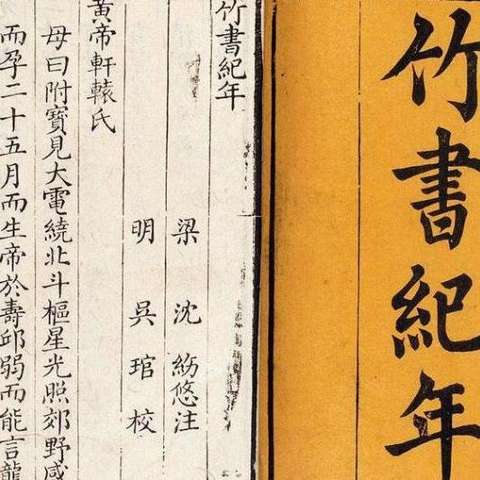 竹書紀年
竹書紀年
梁 沈 紛悠注
明 吳 琯 校
黃帝軒轅氏
母曰附寶見大電繞北斗樞星光照郊野感
而孕二十五月而生帝於壽邱弱而能言龍